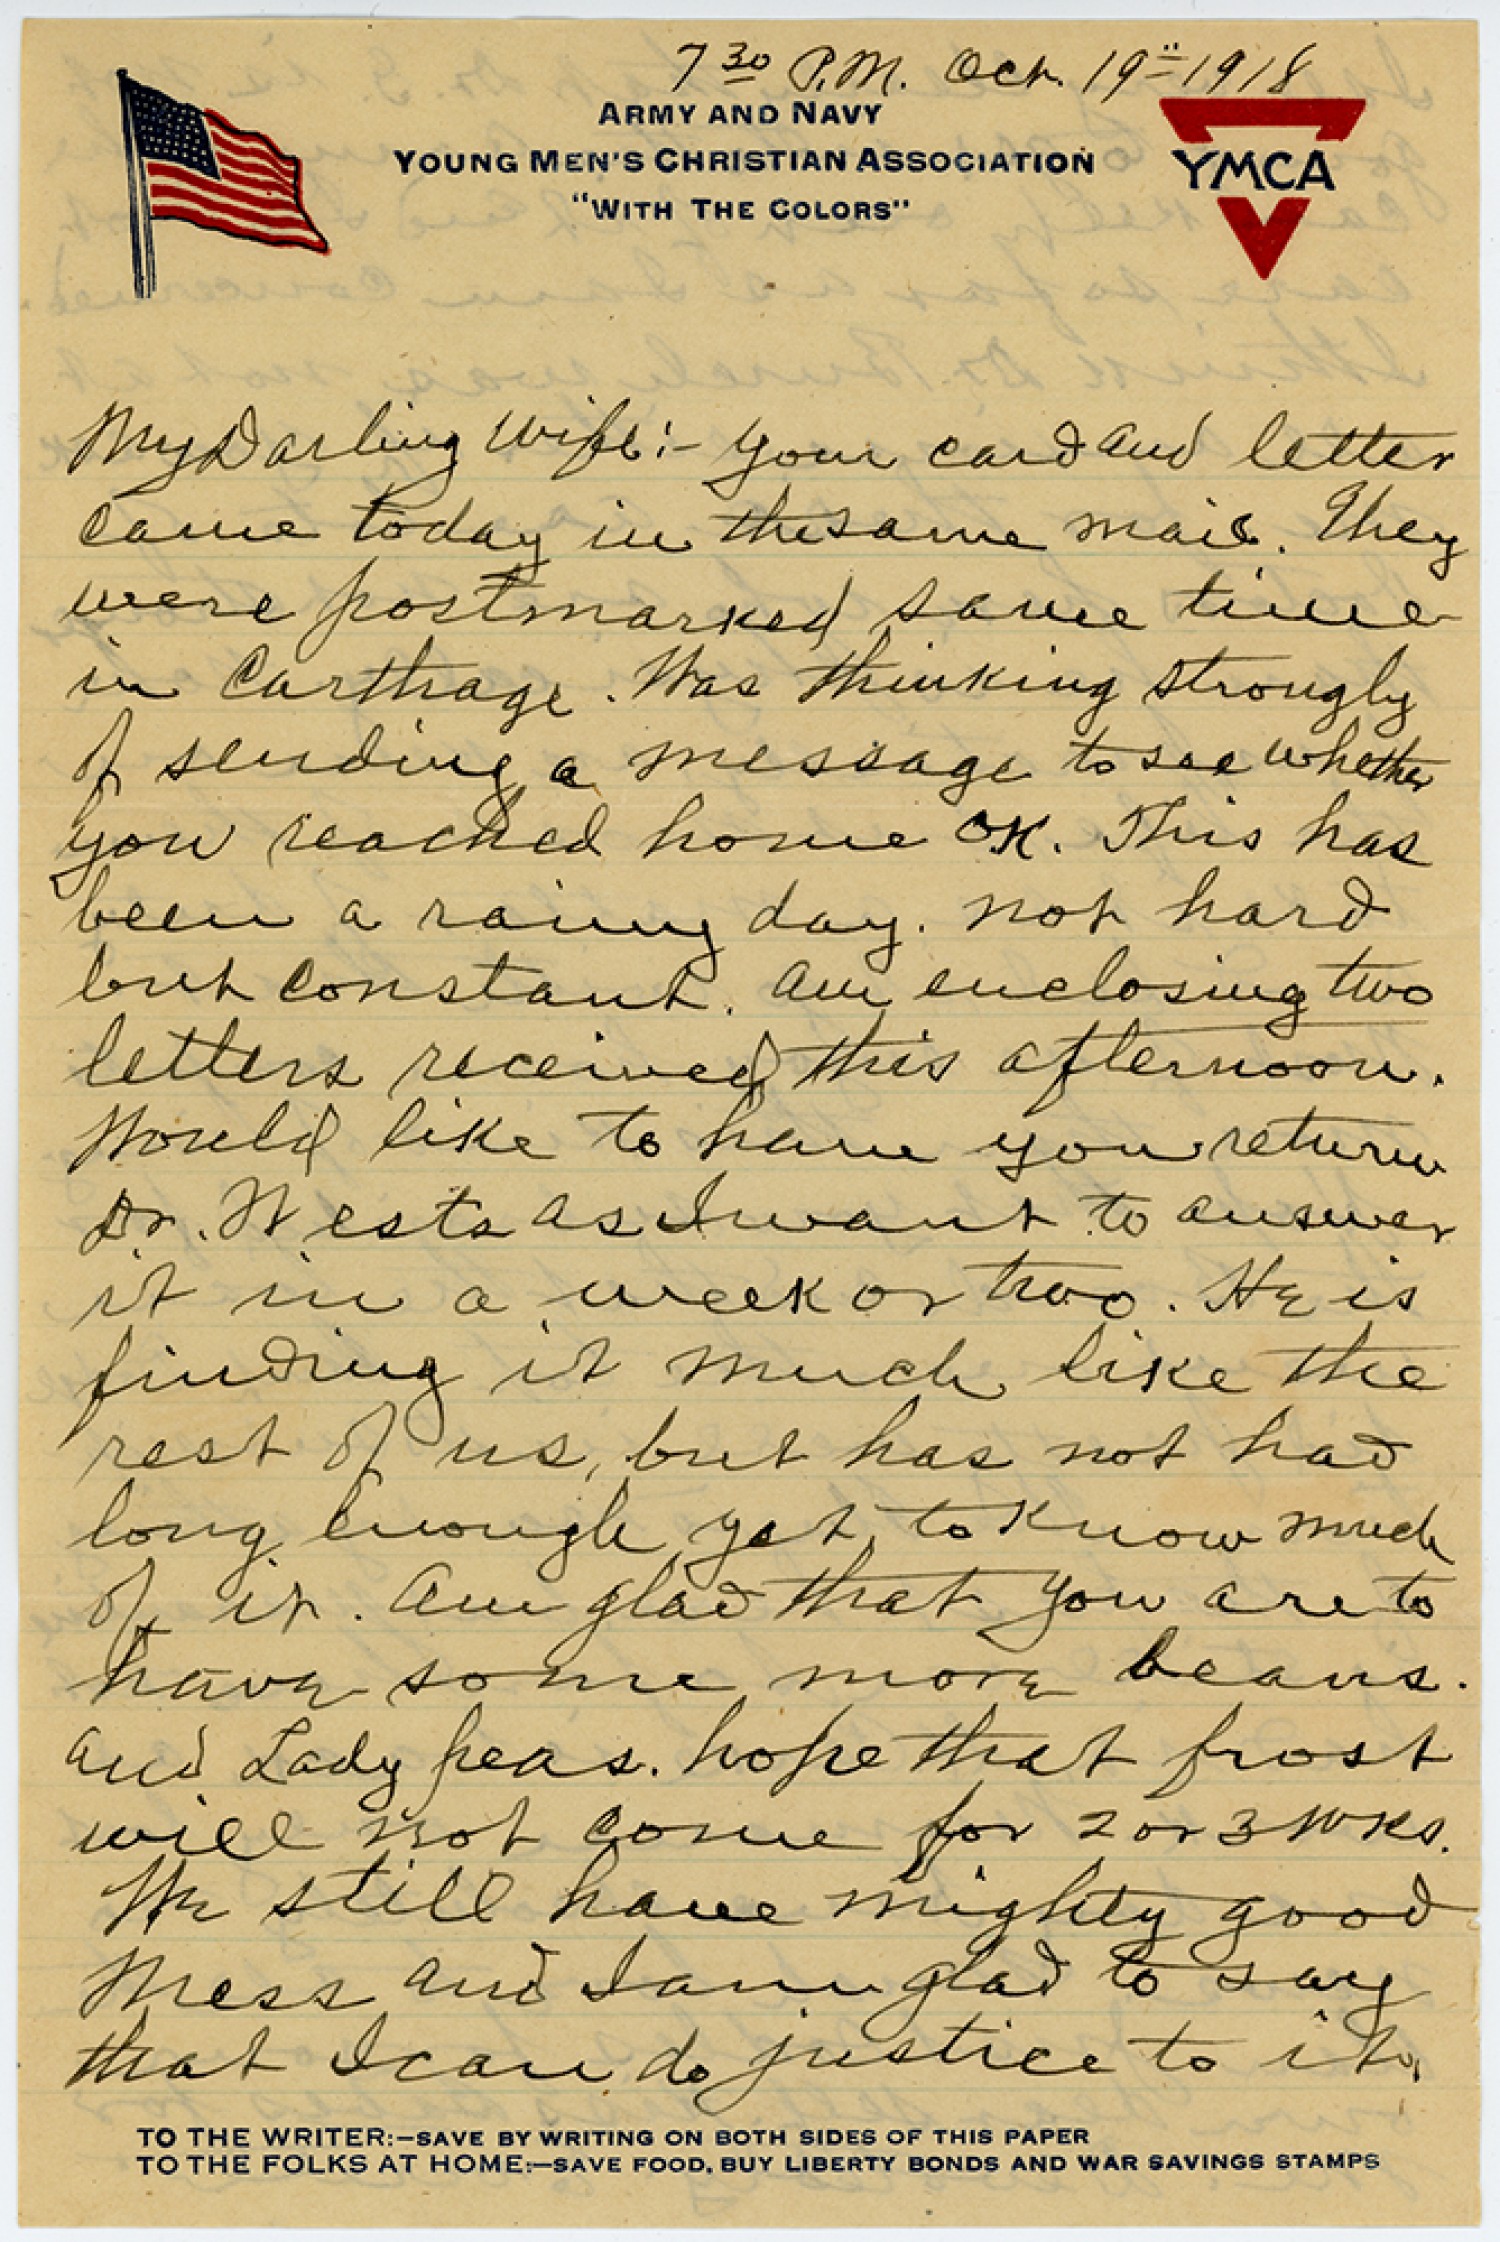 7 30 P.M. Oct. 19th 1918
ARMY AND NAVY
YOUNG MEN'S CHRISTIAN ASSOCIATION
"WITH THE COLORS"
YMCA
My Darling Wife:- Your card and letter
came today in the same mail. They
were postmarked same time
in Carthage. Was thinking strongly
of sending a message to see whether
you reached home OK. This has
been a rainy day. Not hard
but constant. Am enclosing two
letters received this afternoon.
Would like to have you return
Dr. Wests as I want to answer
it in a week or two. He is
finding it much like the
rest of us, but has not had
long enough yet to know much
of it. Am glad that you are to
have some more beans.
and Lady peas. hope that frost
will not come for 2 or 3 wks.
We still have mighty good
Mess and I am glad to say
that I can do justice to it.
TO THE WRITER:-SAVE BY WRITING ON BOTH SIDES OF THIS PAPER
TO THE FOLKS AT HOME:-SAVE FOOD, BUY LIBERTY BONDS AND WAR SAVINGS STAMPS